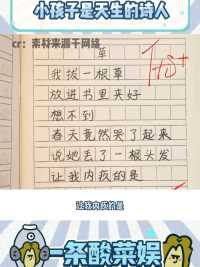 小孩子是天生的诗人
cr：素材来源于网络
草
我拔一根草
放进书里夹好
想不到
春天竟然哭了起来
说她丢了一根头发
让我内疚的是
让我内疚的是
一条酸菜娱